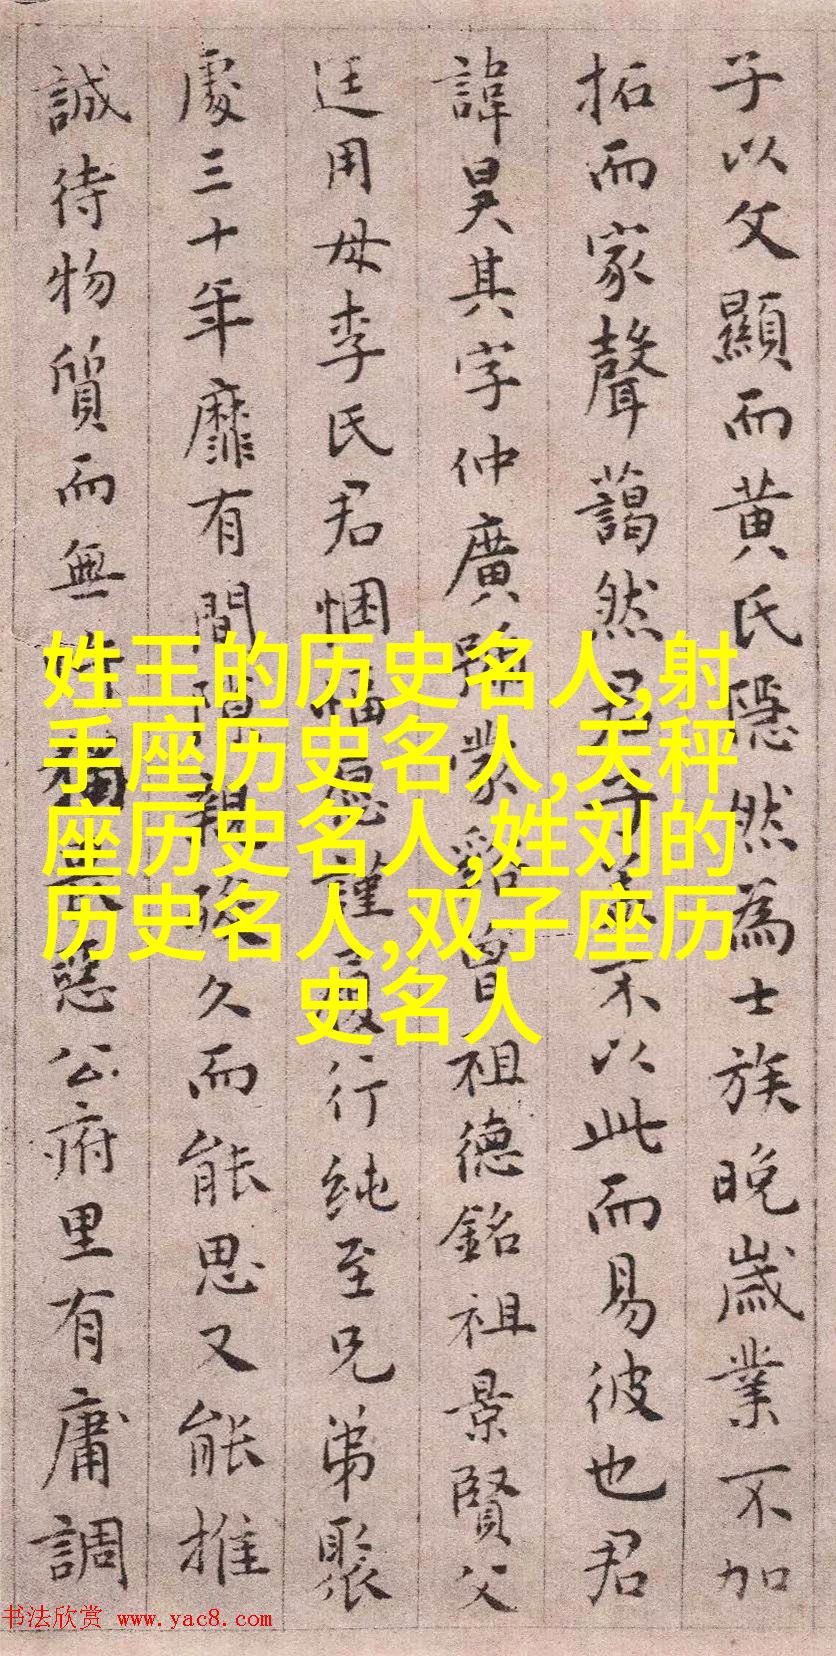 子以父顯而黄氏隱然為士族晚歲業不加
拓而家聲藹然君不以此而易彼也君
諱昊其字仲廣號蒙谿曾祖德銘祖景賢父
廷用母李氏君悃愊謹行純至兄弟聚
處三十年靡有間久而能思又能推
誠待物質而無惡公府里有庸調
姓王的历史名人,射
手座历史名人,天秤
座历史名人,姓刘的
历史名人,双子座历
史名人
书法欣赏 www.yac8.com